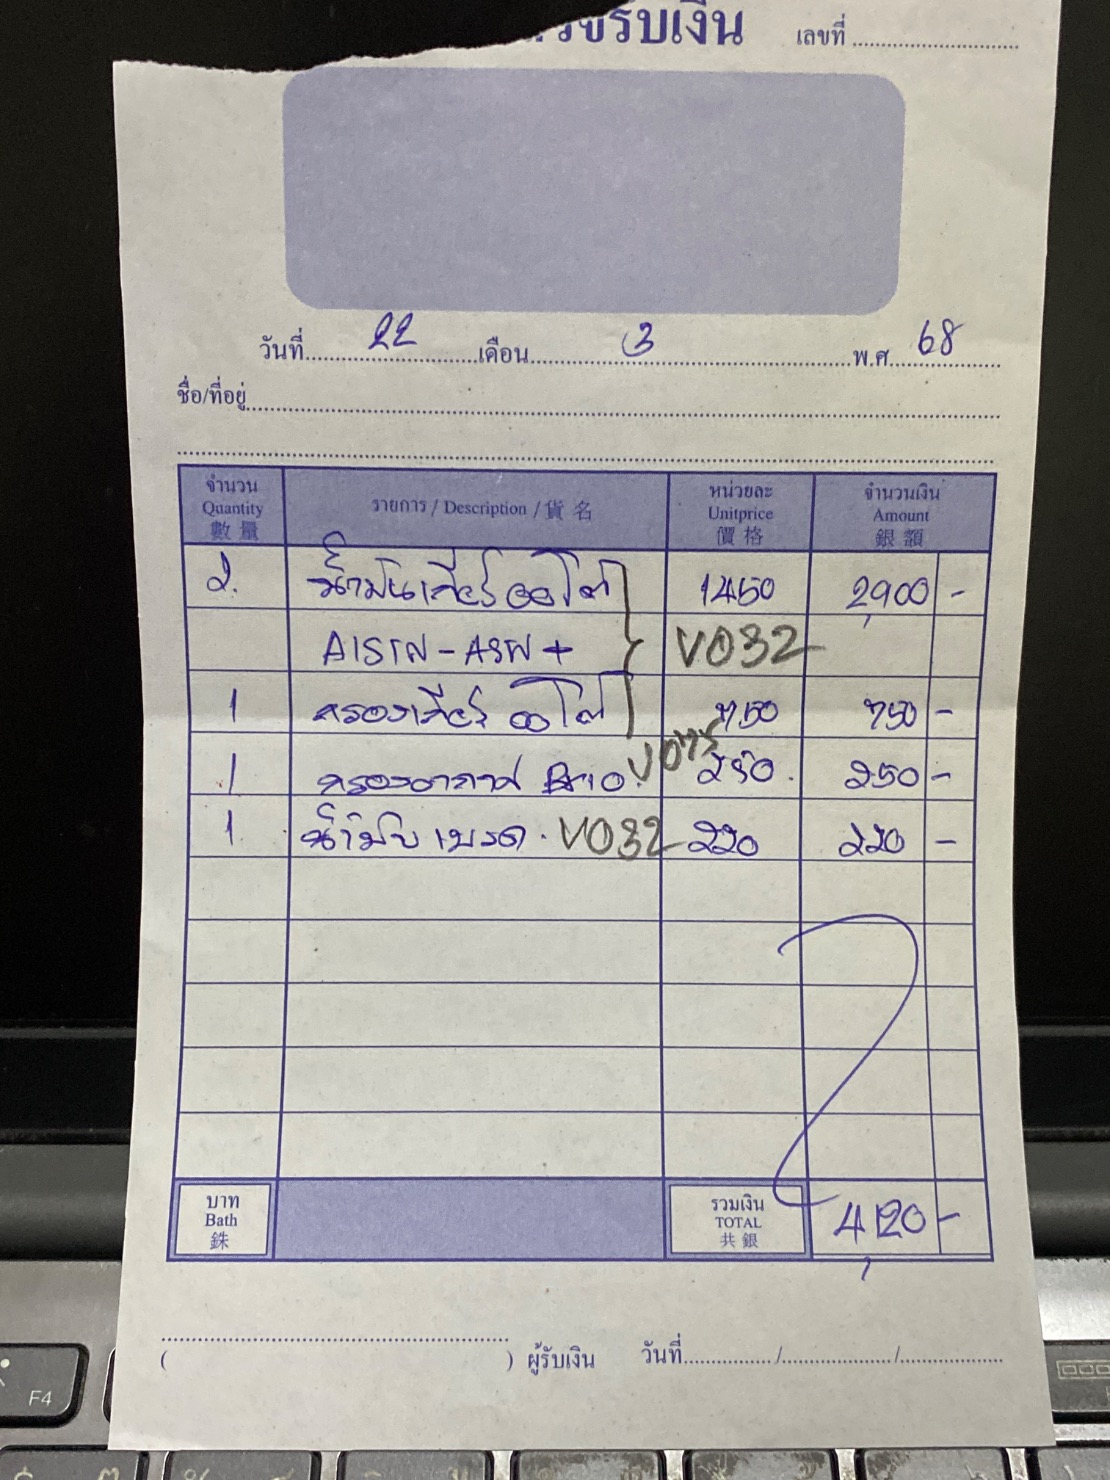 รับเงิน เลขที่
วันที่ 22 เดือน 3 พ.ศ. 68
ชื่อ/ที่อยู่
จำนวน รายการ / Description / 貨名 หน่วยละ จำนวนเงิน
Quantity Unitprice Amount
數量 價格 銀額
2. น้ำมันเกียร์ ออโต้ 1450 2,900 -
AISIN - ASW + VO32
1 กรองเกียร์ ออโต้ 750 750 -
1 กรองอากาศ Brio. 250. 250 -
1. น้ำมัน เบรค. VO32 220 220 -
บาท รวมเงิน
Bath TOTAL 4,120 -
銖 共銀
( ) ผู้รับเงิน วันที่ / /
F4